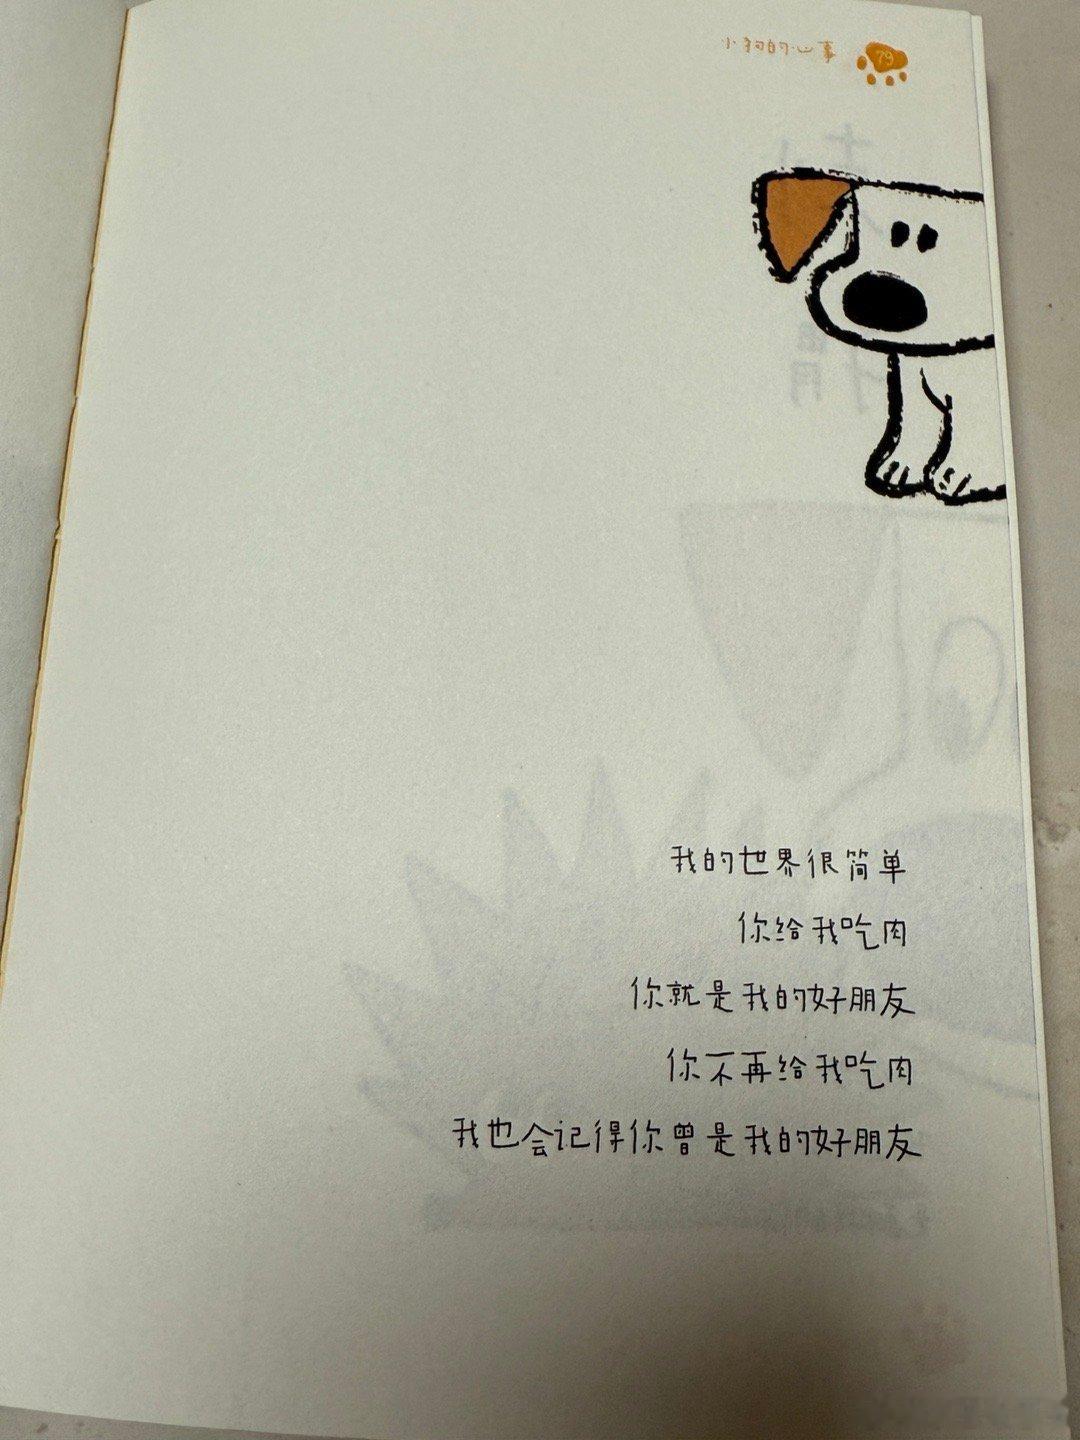 小狗的心事 79
我的世界很简单
你给我吃肉
你就是我的好朋友
你不再给我吃肉
我也会记得你曾是我的好朋友